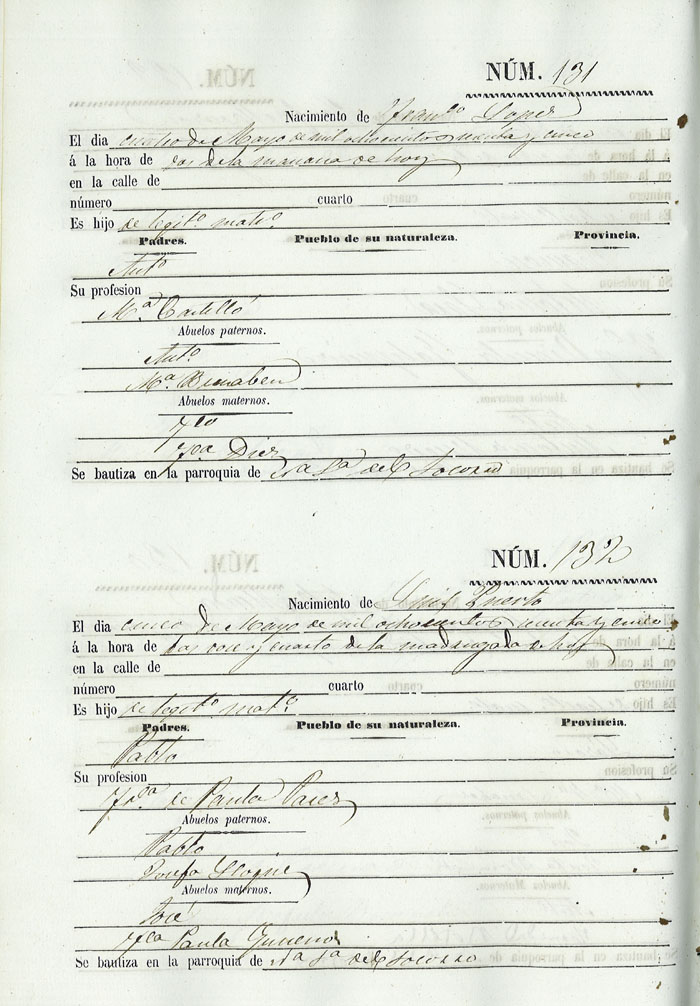 NÚM. 131
Nacimiento de Fran.co Lopez
El dia cuatro de Mayo de mil ochocientos y cinco
á la hora de dos de la mañana de hoy
en la calle de
número cuarto
Es hijo de legit.o mat.o
Padres. Pueblo de su naturaleza. Provincia.
Ant.o
Su profesion
M.a Castelló
Abuelos paternos.
Ant.o
M.a
Abuelos maternos.
F.co
F.ca Diez
Se bautiza en la parroquia de del Socorro
NÚM. 132
Nacimiento de Luis Puerto
El dia cinco de Mayo de mil ochocientos y cinco
á la hora de las y cuarto de la madrugada de hoy
en la calle de
número cuarto
Es hijo de legit.o mat.o
Padres. Pueblo de su naturaleza. Provincia.
Pablo
Su profesion
de Paula Perez
Abuelos paternos.
Pablo
Josefa
Abuelos maternos.
José
F.ca Paula
Se bautiza en la parroquia de del Socorro